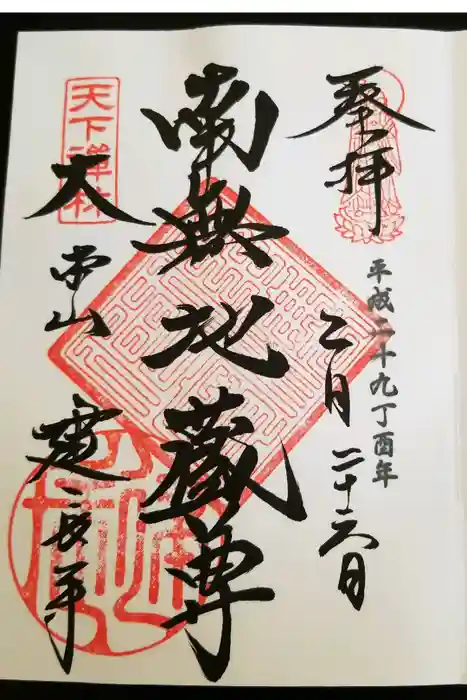 拝
平成二十九丁酉年
二月二十六日
南無地蔵尊
天下禅林
大本山 建長寺